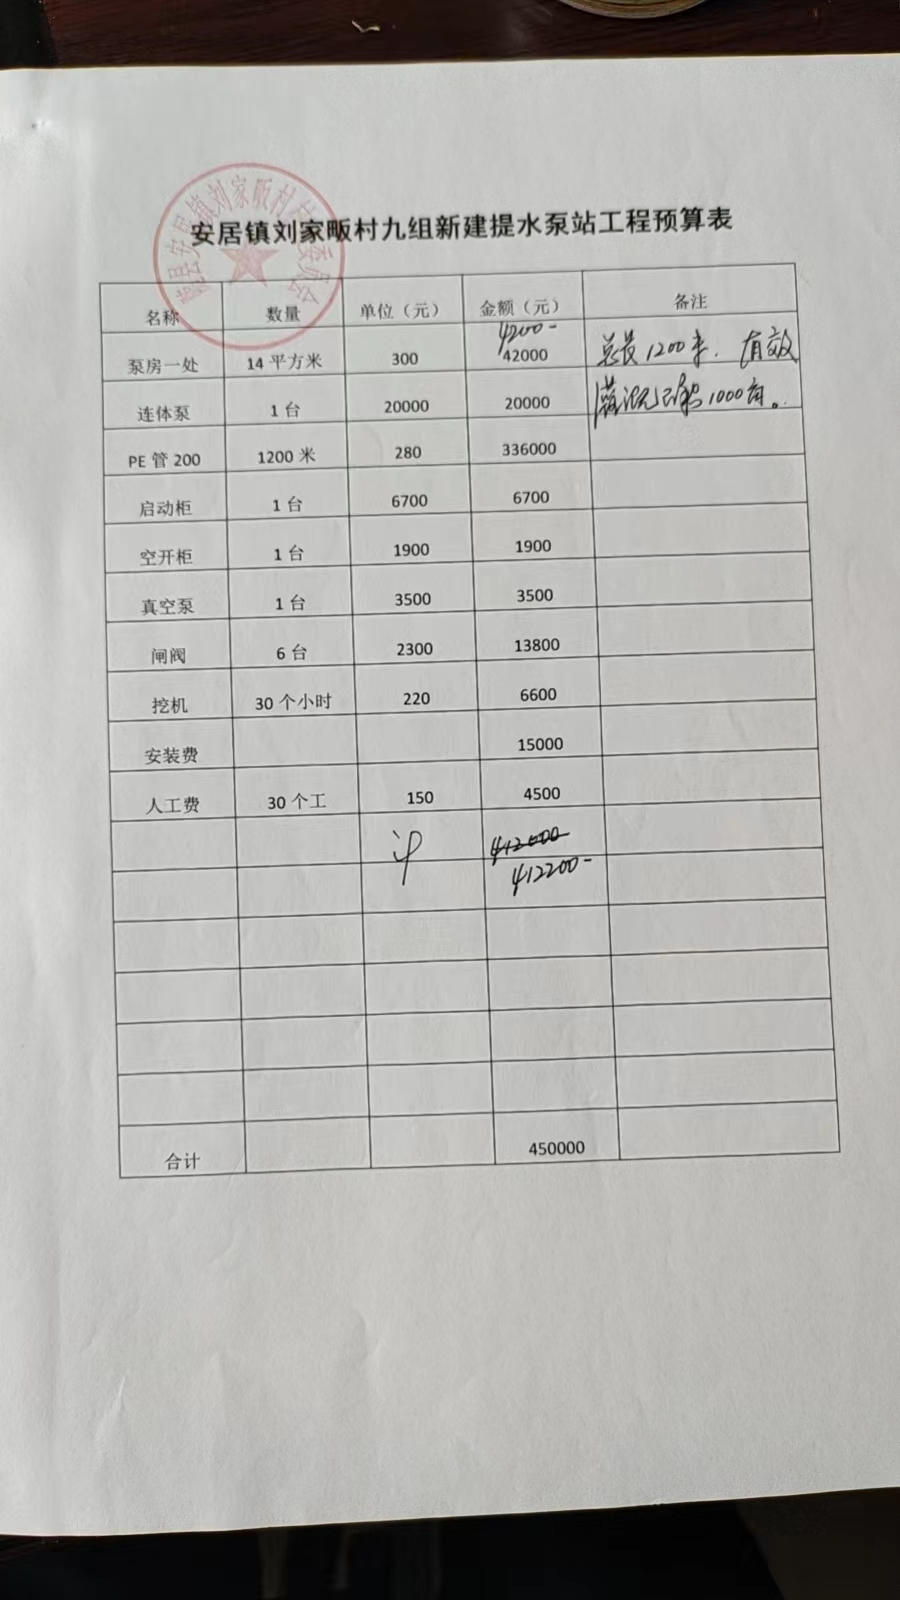 安居镇刘家畈村九组新建提水泵站工程预算表
名称 数量 单位（元） 金额（元） 备注
4200-
泵房一处 14平方米 300 42000 总长1200米．有效
连体泵 1台 20000 20000 灌溉面积1000亩。
PE管200 1200米 280 336000
启动柜 1台 6700 6700
空开柜 1台 1900 1900
真空泵 1台 3500 3500
闸阀 6台 2300 13800
挖机 30个小时 220 6600
安装费 15000
人工费 30个工 150 4500
计 412000
412200-
合计 450000